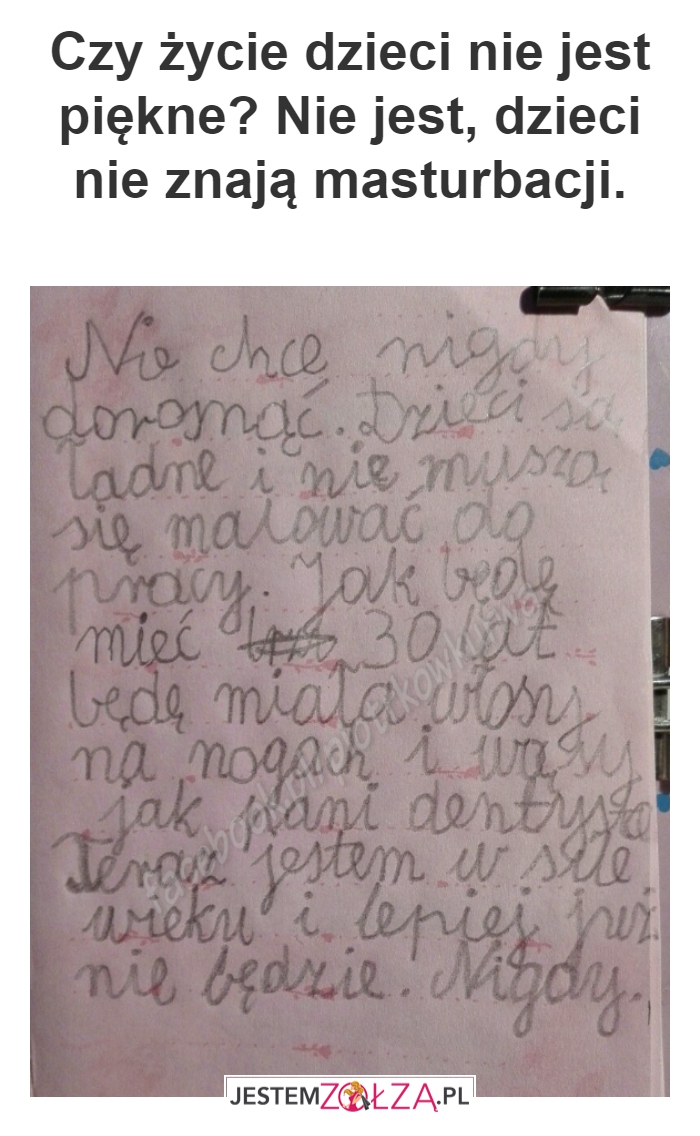 Czy życie dzieci nie jest
piękne? Nie jest, dzieci
nie znają masturbacji.
Nie chcę nigdy
dorosnąć. Dzieci są
ładne i nie muszą
się malować do
pracy. Jak będę
mieć 30 lat
będę miała włosy
na nogach i wąsy
jak pani dentysta
Teraz jestem w sile
wieku i lepiej już
nie będzie. Nigdy.
JESTEMZOŁZĄ.PL